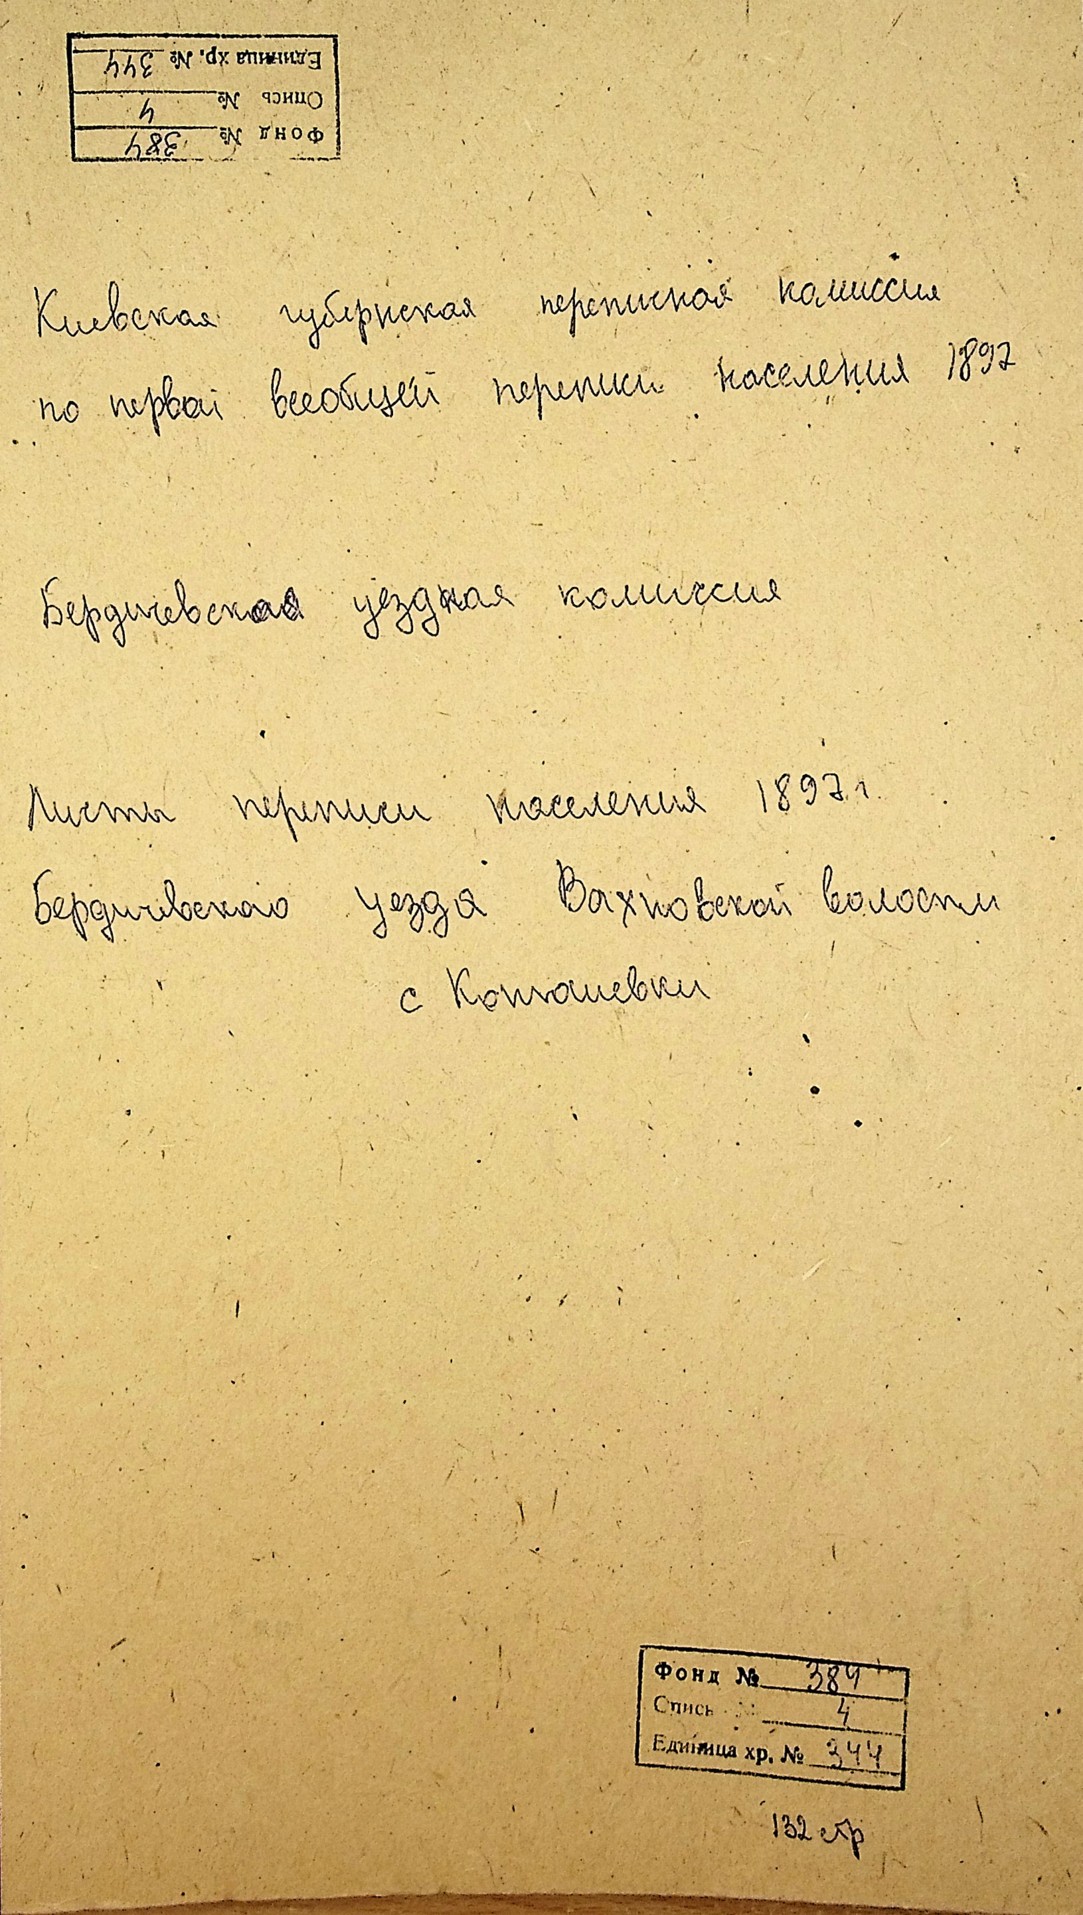 Единица хр. № 344
Опись № 4
Фонд № 384
Киевская губернская переписная комиссия
по первой всеобщей переписи населения 1897
Бердичевская уездная комиссия
Листы переписи населения 1897 г.
Бердичевского уезда Вахновской волости
с Конташевки
Фонд № 384
Опись № 4
Единица хр. № 344
132 стр